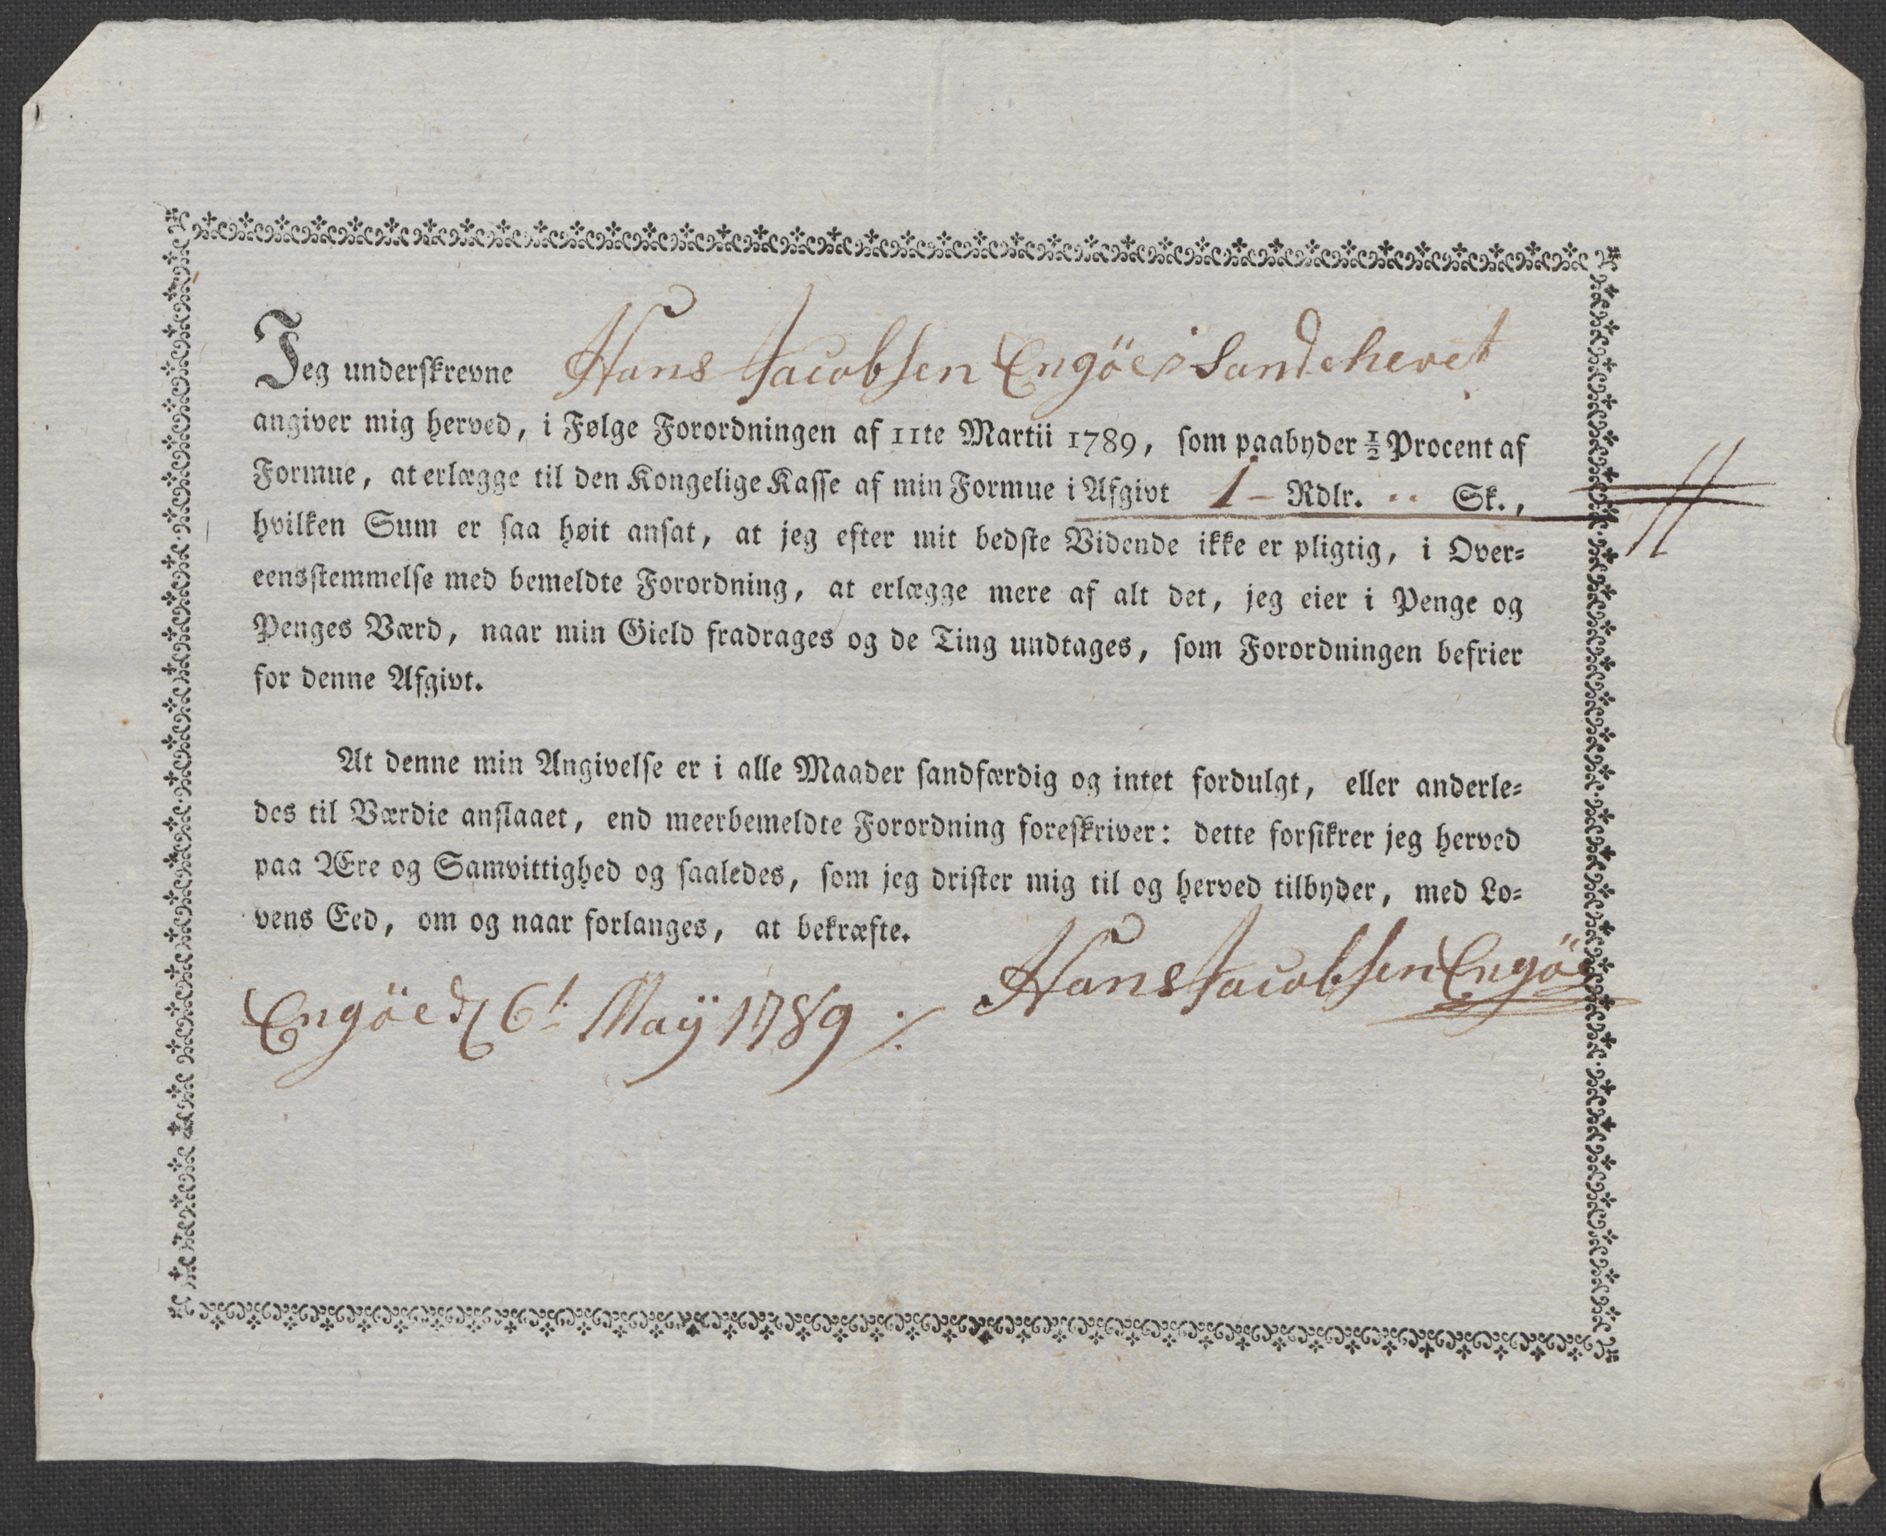 Jeg underskrevne Hans Jacobsen Engöe i Sandeheret
angiver mig herved, i Følge Forordningen af 11te Martii 1789, som paabyder ½ Procent af
Formue, at erlægge til den Kongelige Kasse af min Formue i Afgivt 1 – Rdlr. .. Sk.,
hvilken Sum er saa høit ansat, at jeg efter mit bedste Vidende ikke er pligtig, i Over=
eensstemmelse med bemeldte Forordning, at erlægge mere af alt det, jeg eier i Penge og
Penges Værd, naar min Gield fradrages og de Ting undtages, som Forordningen befrier
for denne Afgivt.
At denne min Angivelse er i alle Maader sandfærdig og intet fordulgt, eller anderle=
des til Værdie anslaaet, end meerbemeldte Forordning foreskriver: dette forsikrer jeg herved
paa Ære og Samvittighed og saaledes, som jeg drister mig til og herved tilbyder, med Lo=
vens Eed, om og naar forlanges, at bekræfte.
Hans Jacobsen Engöe
Engöe d 6t Maÿ 1789